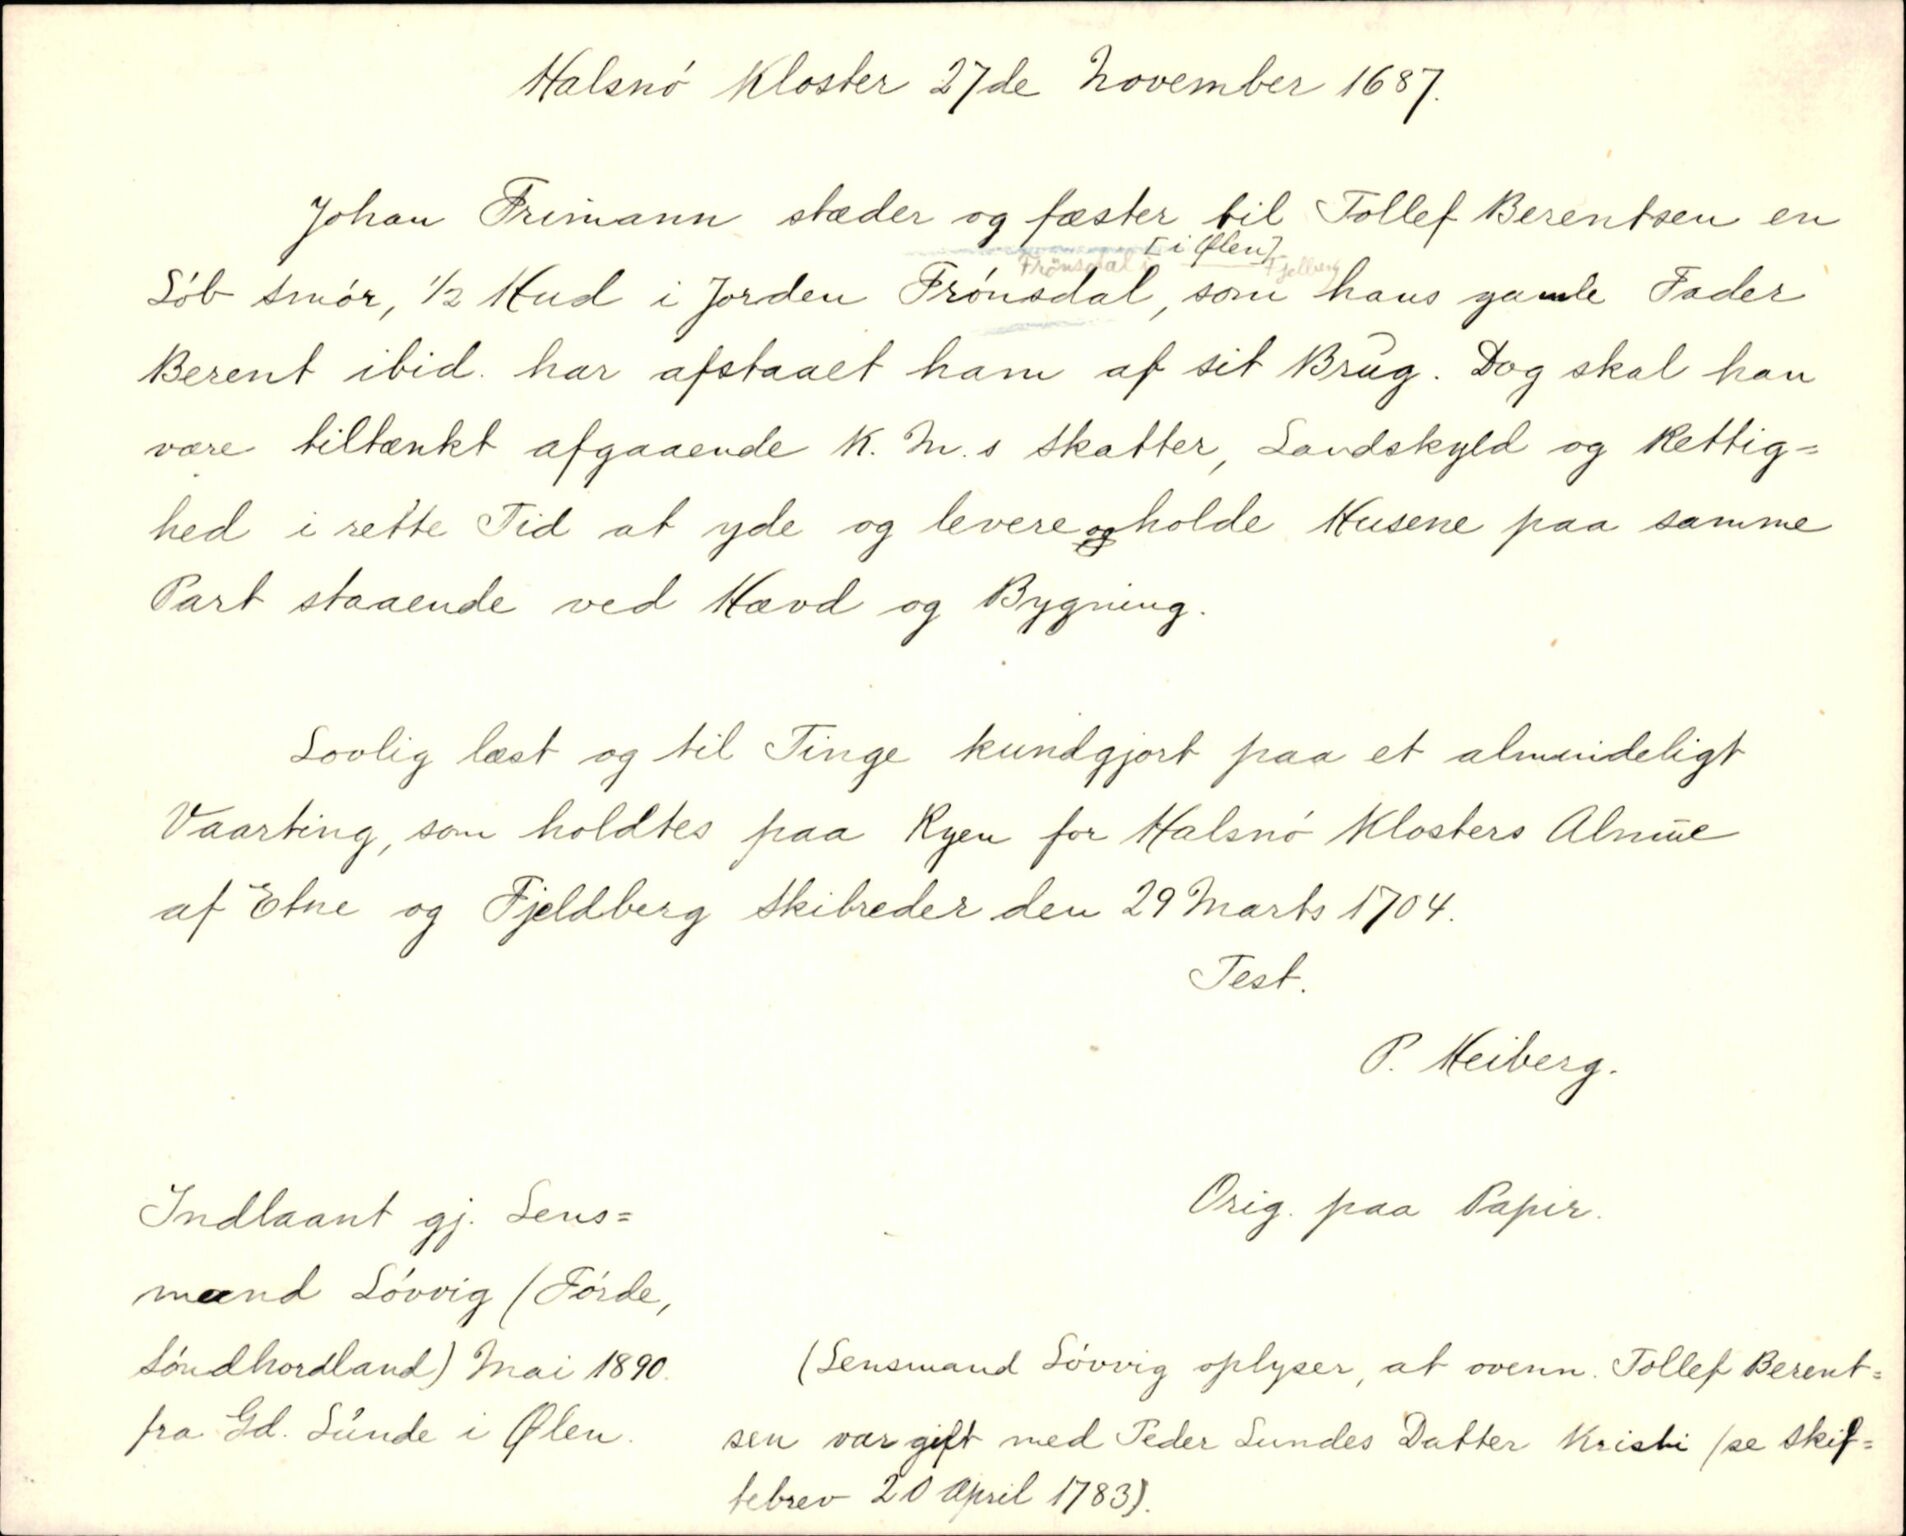 Halsnó Kloster 27de November 1687.
Johan Frimann stæder og fæster til Tollef Berentsen en
[i Ølen]
Frönsdal i Fjelberg
Lób Smór, 1/2 Hud i Jorden Frónsdal, som hans gamle Fader
Berent ibid. har afstaaet ham af sit Brug. Dog skal han
være tiltænkt afgaaende K. M.s Skatter, Landskyld og Rettig=
hed i rette Tid at yde og levere og holde Husene paa samme
Part staaende ved Hævd og Bygning.
Lovlig læst og til Tinge kundgjort paa et almindeligt
Vaarting, som holdtes paa Ryen for Halsnó Klosters Almūe
af Etne og Fjeldberg Skibreder den 29 Marts 1704.
Test.
P. Heiberg.
Orig. paa Papir.
Indlaant gj. Lens=
mand Lóvvig (Fórde,
Sóndhordland) Mai 1890.
fra Gd. Sunde i Ølen.
(Lensmand Lóvvig oplyser, at ovenn. Tollef Berent=
sen var gift med Peder Lundes Datter Kristi (se Skif=
tebrev 20 April 1783).